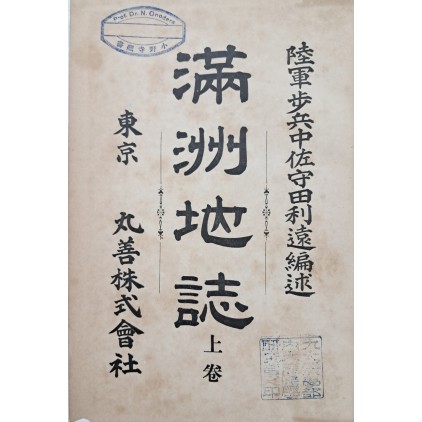 陸軍步兵中佐守田利遠編述
滿洲地誌
上卷
東京 丸善株式會社
Prof. Dr. N. Onodera